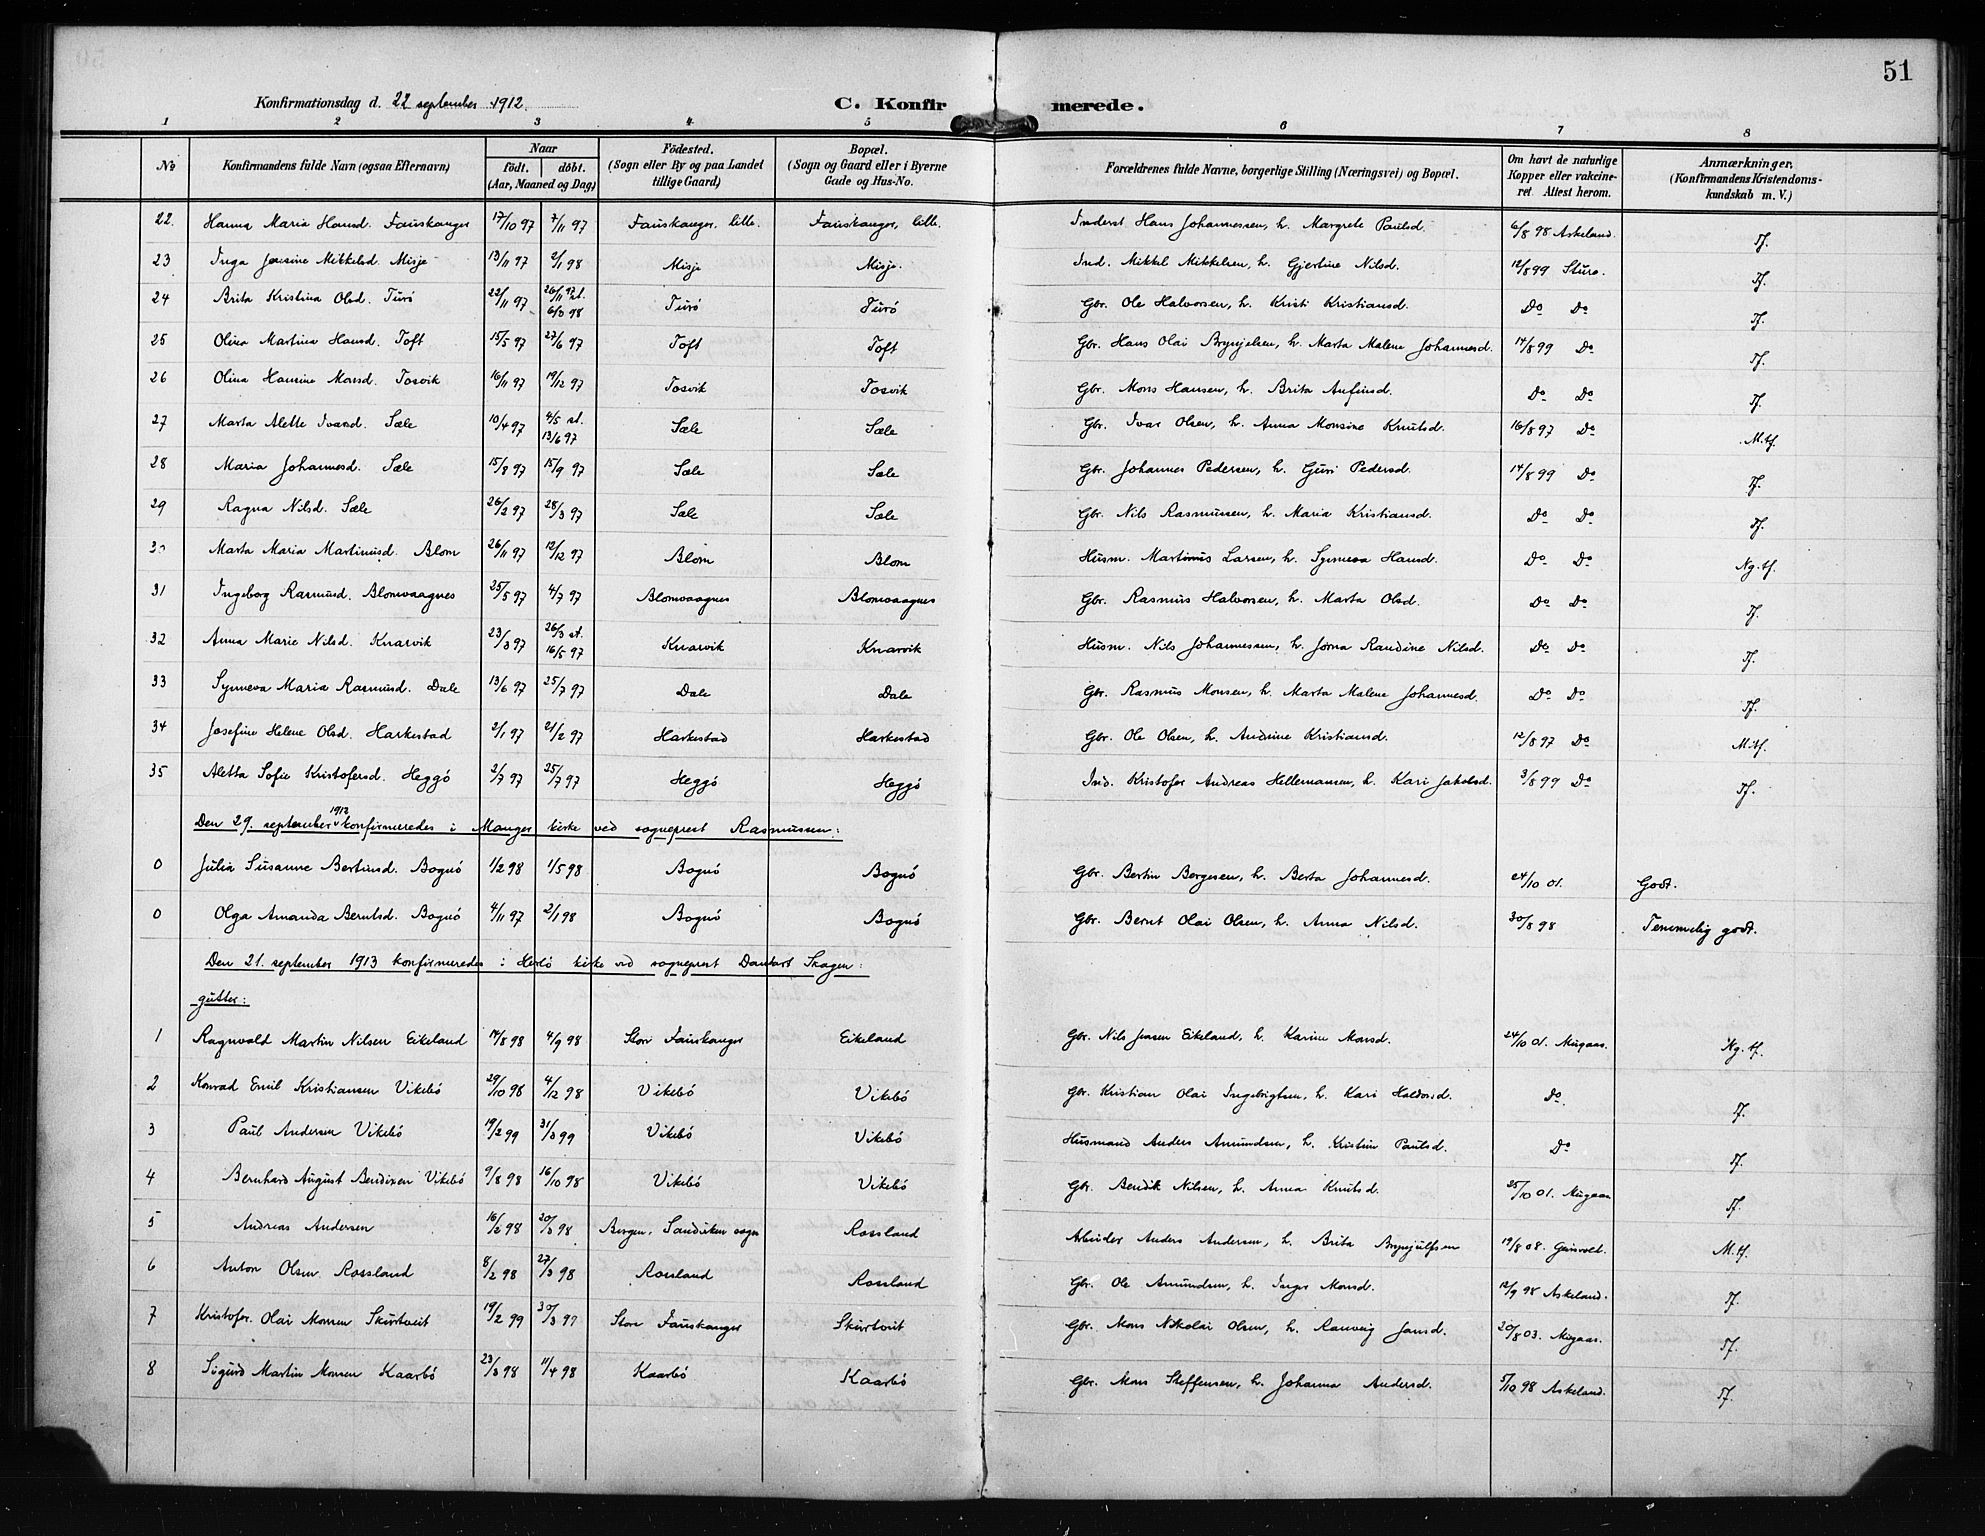 51
Konfirmationsdag d. 22 september 1912.
C. Konfirmerede.
1 2 3 4 5 6 7 8
No
Konfirmandens fulde Navn (ogsaa Efternavn)
Naar
födt. döbt.
(Aar, Maaned og Dag)
Födested.
(Sogn eller By og paa Landet
tillige Gaard)
Bopæl.
(Sogn og Gaard eller i Byerne
Gade og Hus-No.
Forældrenes fulde Navne, borgerlige Stilling (Næringsvei) og Bopæl.
Om havt de naturlige
Kopper eller vakcine-
ret. Attest herom.
Anmærkninger.
(Konfirmandens Kristendoms-
kundskab m. V.)
22. Hanna Maria Hansd. Fauskanger 17/10 97 7/11 97 Fauskanger, lille. Fauskanger, lille. Inderst Hans Johannessen, h. Margrete Paulsd. 6/8 98 Askeland. Tf.
23 Inga Jensine Mikkelsd. Misje 13/11 97 2/1 98 Misje Misje. Ind. Mikkel Mikkelsen, h. Gjertine Nilsd. 12/8 99 Sture. Tf.
24 Brita Kristina Olsd. Turö 22/11 97 26/11 97 st. 6/3 98 Turö Turö Gbr. Ole Halvorsen, h. Kristi Kristiansd. Do Do Tf.
25 Olina Martina Hansd. Toft 15/5 97 27/6 97 Toft Toft Gbr. Hans Olai Brynjelsen, h. Marta Malene Johannesd. 14/8 99 Do Tf.
26 Olina Hansine Monsd. Tosvik 16/11 97 19/12 97 Tosvik Tosvik Gbr. Mons Hansen, h. Brita Anfinsd. Do Do Tf.
27 Marta Alette Ivarsd. Sæle 10/4 97 4/5 st. 13/6 97 Sæle Sæle Gbr. Ivar Olsen, h. Anna Monsine Knutsd. 16/8 97 Do M.tf.
28 Maria Johannesd. Sæle 15/8 97 15/9 97 Sæle Sæle Gbr. Johannes Pedersen, h. Guri Pedersd. 14/8 99 Do Tf.
29 Ragna Nilsd. Sæle 26/2 97 28/3 97 Sæle Sæle Gbr. Nils Rasmussen, h. Maria Kristiansd. Do Do Tf.
30 Marta Maria Martinusd. Blom 26/11 97 12/12 97 Blom Blom Husm. Martinus Larsen, h. Synneva Hansd. Do Do Ng.tf.
31 Ingeborg Rasmusd. Blomvaagnes 25/5 97 4/7 97 Blomvaagnes Blomvaagnes Gbr. Rasmus Halvorsen, h. Marta Olsd. Do Do Tf.
32 Anna Marie Nilsd. Knarvik 23/3 97 26/3 st. 16/5 97 Knarvik Knarvik Husm. Nils Johannessen, h. Jorna Randine Nilsd. Do Do Tf.
33 Synneva Maria Rasmusd. Dale 13/6 97 25/7 97 Dale Dale Gbr. Rasmus Monsen, h. Marta Malene Johannesd. Do Do Tf.
34 Josefine Helene Olsd. Harkestad 2/1 97 21/2 97 Harkestad Harkestad Gbr. Ole Olsen, h. Andrine Kristiansd. 12/8 97 Do M.tf.
35 Aletta Sofie Kristofersd. Heggö 2/7 97 25/7 97 Heggö Heggö Ind. Kristofer Andreas Hellemansen, h. Kari Jakobsd. 3/8 99 Do Tf.
Den 29. september 1912 konfirmeredes i Manger kirke ved sogneprest Rasmussen:
0 Julia Susanne Bertinsd. Bognö 1/2 98 1/5 98 Bognö Bognö Gbr. Bertin Børgesen, h. Berta Johannesd. 24/10 01. Godt.
0 Olga Amanda Berntsd. Bognö 4/11 97 2/1 98 Bognö Bognö Gbr. Bernt Olai Olsen, h. Anna Nilsd. 30/8 98 Temmelig godt.
Den 21. september 1913 konfirmeredes i Herlö kirke ved sogneprest Dankert Skagen:
gutter:
1 Ragnvald Martin Nilsen Eikeland 14/8 98 4/9 98 Store Fauskanger Eikeland Gbr. Nils Jensen Eikeland, h. Karine Monsd. 24/10 01. Mugaas. Ng.tf.
2 Konrad Emil Kristiansen Vikebö 29/10 98 4/12 98 Vikebö Vikebö Gbr. Kristian Olai Ingebrigtsen, h. Kari Haldorsd. Do. Tf.
3 Paul Andersen Vikebö 19/2 99 31/3 99 Vikebö Vikebö Husmand Anders Amundsen, h. Kristine Paulsd. Do Tf.
4 Bernhard August Bendixen Vikebö 9/8 98 16/10 98 Vikebö Vikebö Gbr. Bendik Nilsen, h. Anna Knutsd. 25/10 01. Mugaas Tf.
5 Andreas Andersen 16/2 98 20/3 98 Bergen, Sandviken sogn Rossland Arbeider Anders Andersen, h. Brita Brynjulfsen 19/8 08. M.tf.
6 Anton Olsen Rossland 8/2 98 27/3 98 Rossland Rossland Gbr. Ole Amundsen, h. Inger Monsd. 12/9 98 Askeland. Tf.
7 Kristofer Olai Monsen Skurtveit 19/2 99 30/3 99 Store Fauskanger Skurtveit Gbr. Mons Nikolai Olsen, h. Ranveig Jansd. 20/8 03. Mugaas. Tf.
8 Sigurd Martin Monsen Kaarbö 23/3 98 11/4 98 Kaarbö Kaarbö Gbr. Mons Steffensen, h. Johanna Andersd. 5/10 98 Askeland. Tf.